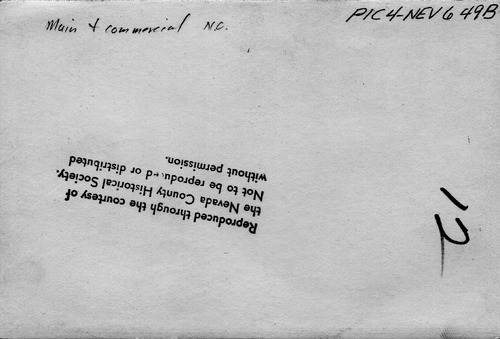 Main & commercial N.C.
PIC4-NEV649B
Reproduced through the courtesy of
the Nevada County Historical Society.
Not to be reproduced or distributed
without permission.
12